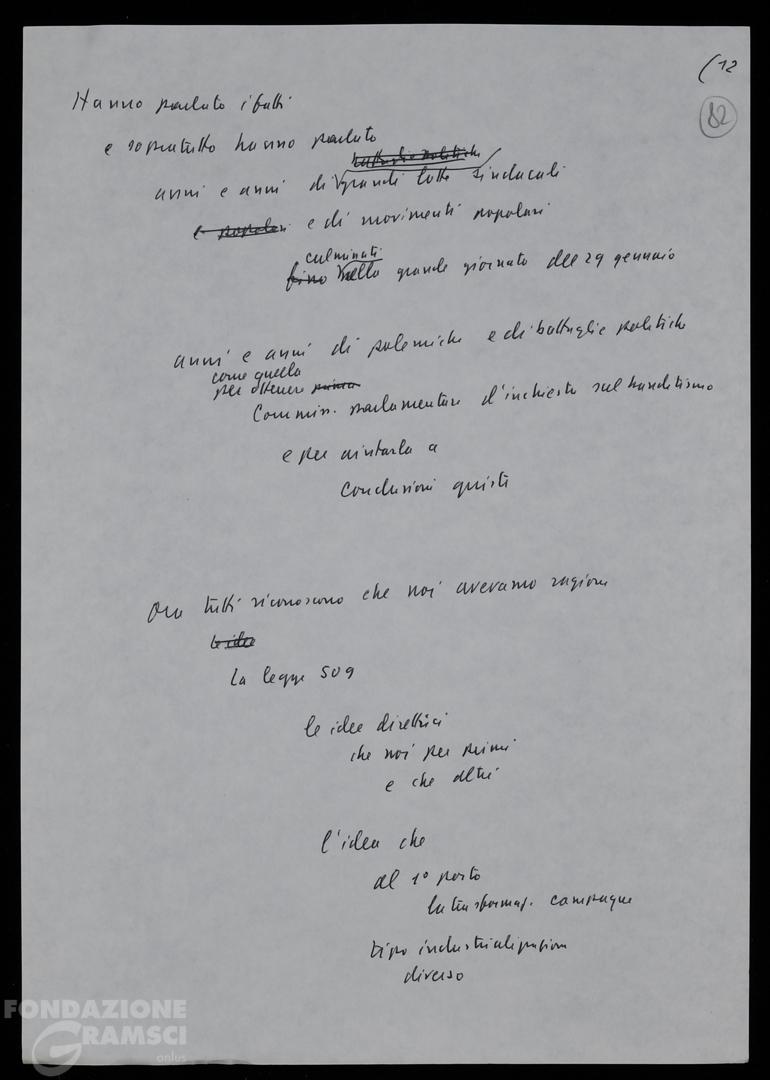 (12
82
Hanno parlato i fatti
e sopratutto hanno parlato
battaglie politiche
anni e anni di grandi lotte sindacali
e popolari e di movimenti popolari
culminati
fino nella grande giornata del 29 gennaio
anni e anni di polemiche e di battaglie politiche
come quella
per ottenere
Commiss. parlamentare d'inchiesta sul banditismo
e per aiutarla a
conclusioni giuste
Ora tutti riconoscono che noi avevamo ragione
le idee
La legge 509
le idee direttrici
che noi per primi
e che altri
l'idea che
al 1° posto
la trasformaz. campagne
tipo industrializzazione
diverso
FONDAZIONE
GRAMSCI
onlus